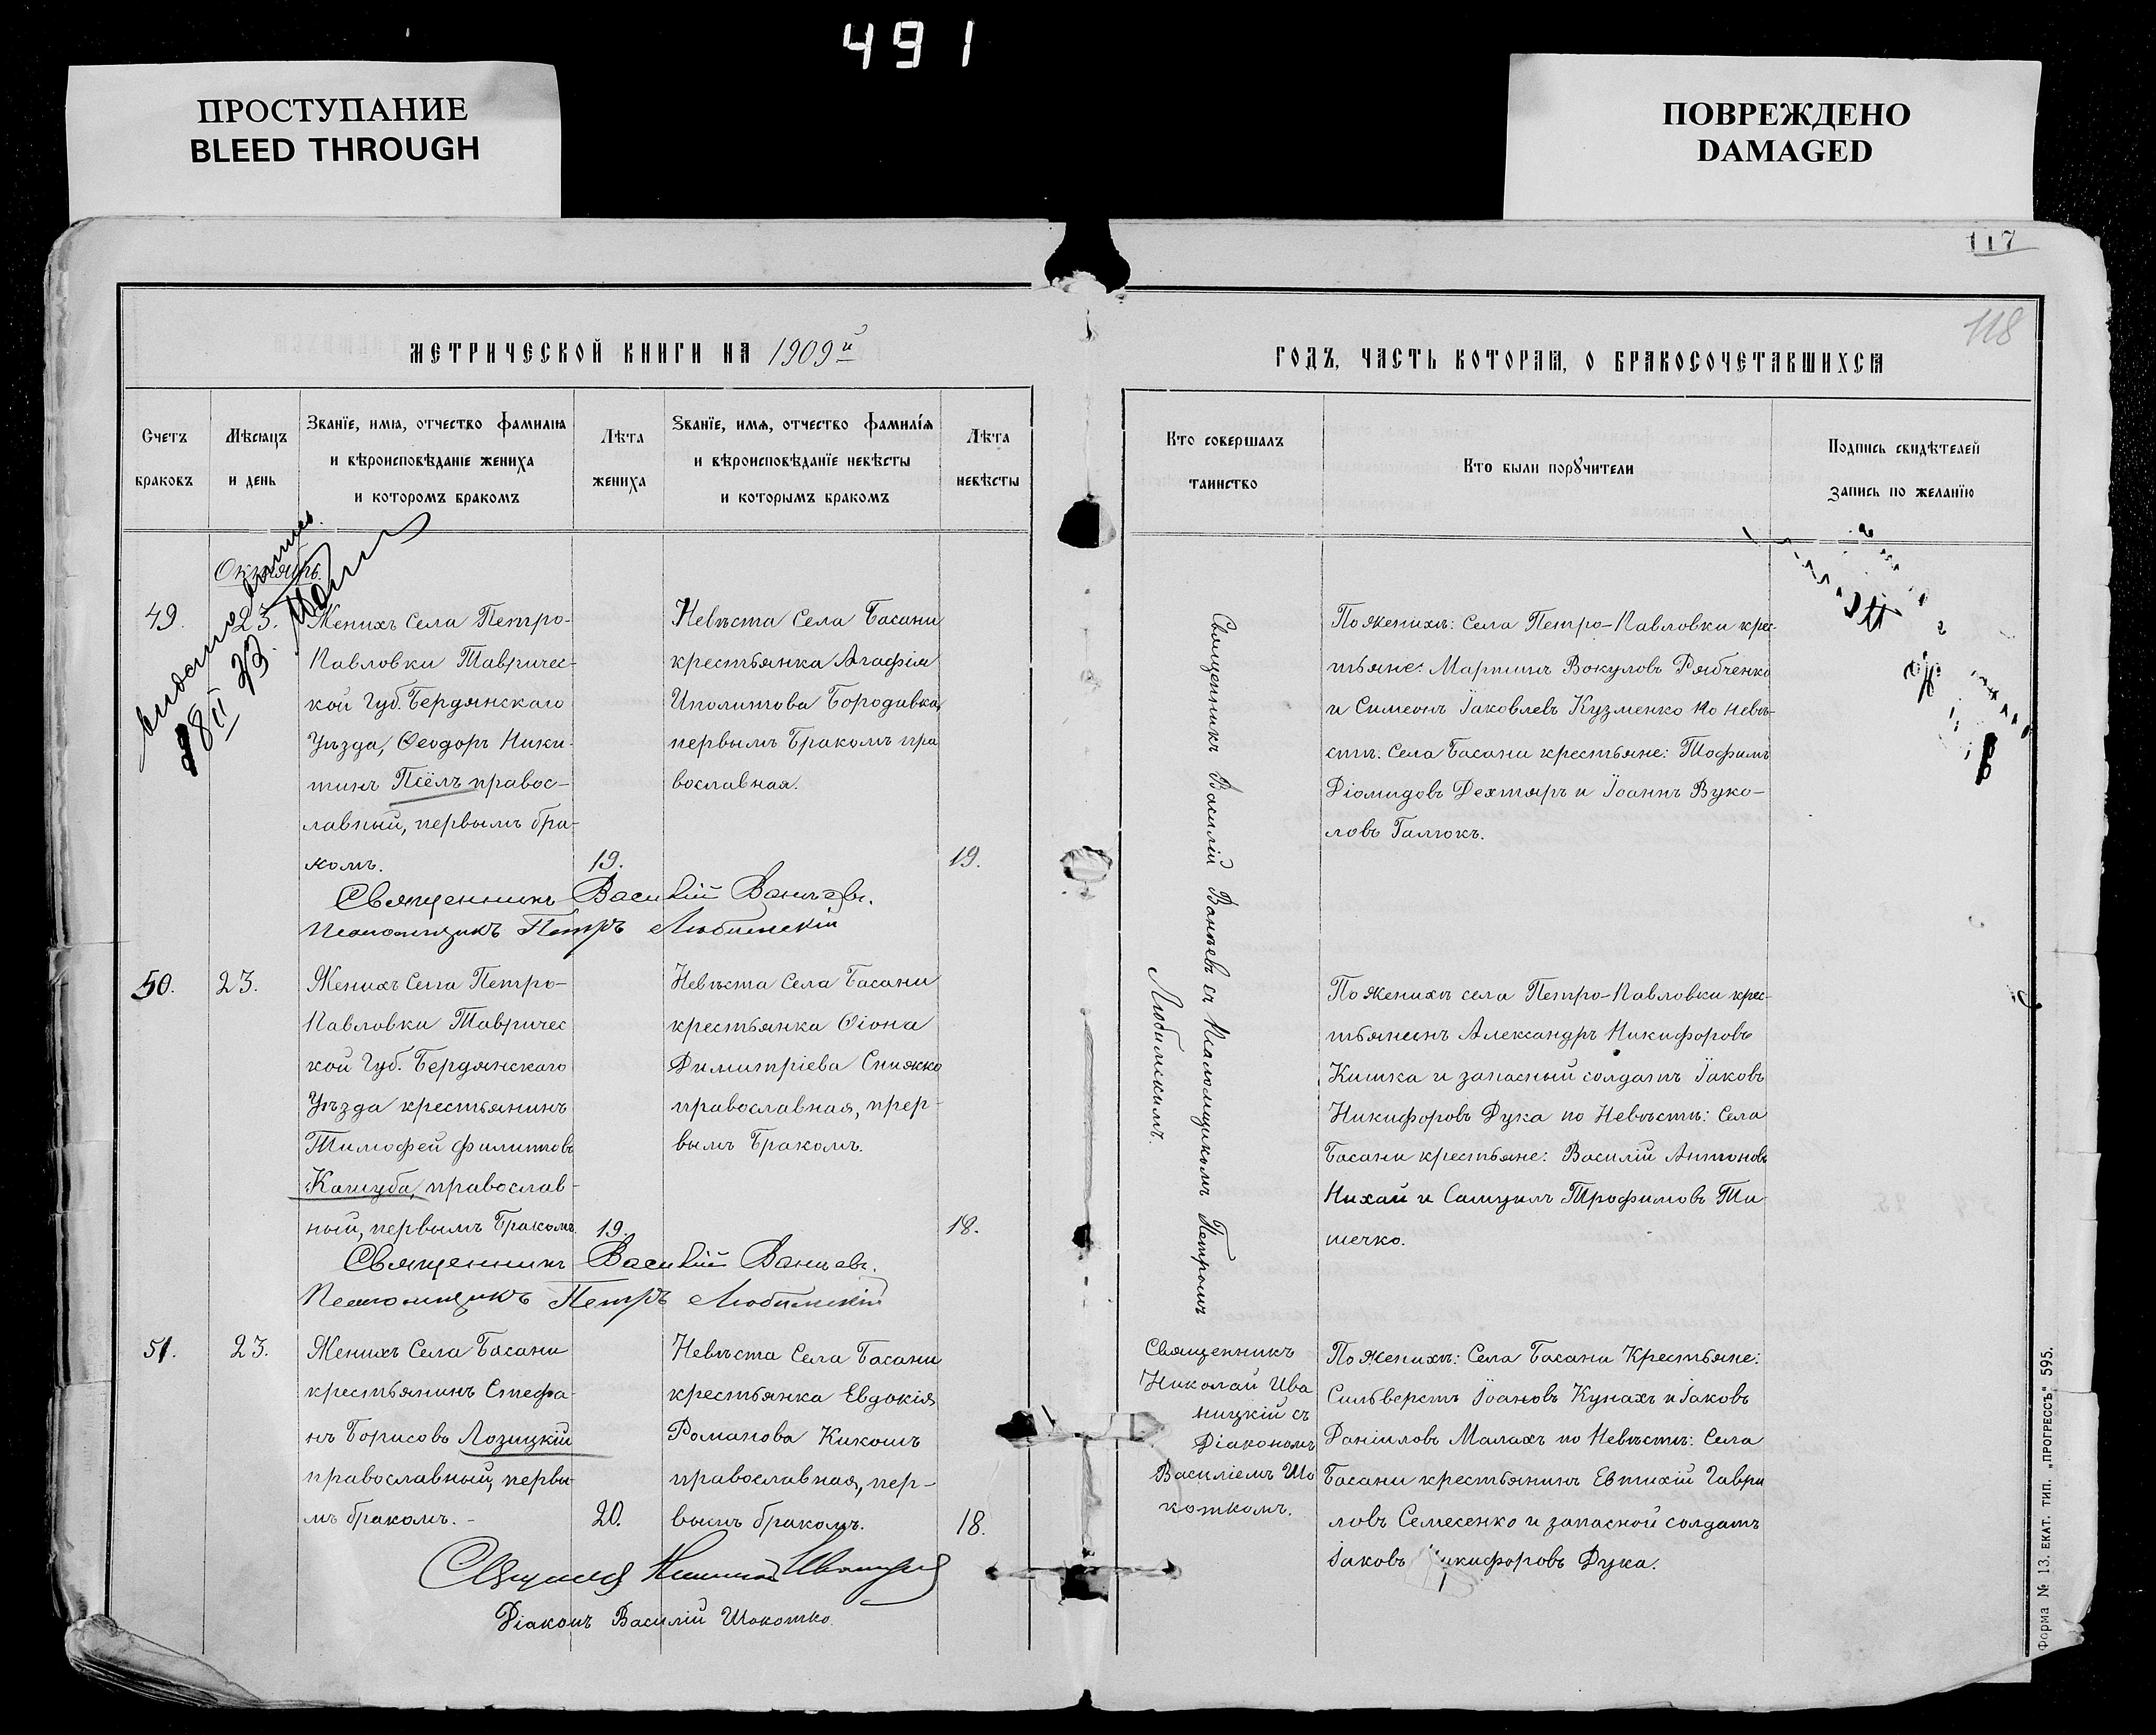 491
ПРОСТУПАНИЕ
BLEED THROUGH
ПОВРЕЖДЕНО
DAMAGED
117
118
МЕТРИЧЕСКОЙ КНИГИ НА 1909й
ГОДЪ, ЧАСТЬ КОТОРАЯ, О БРАКОСОЧЕТАВШИХСЯ
Счетъ браковъ
Мѣсяцъ и день
Званїе, имя, отчество фамилия
и вѣроисповѣданїе жениха
и которомъ бракомъ
Лѣта жениха
Званїе, имя, отчество фамилїя
и вѣроисповѣданїе невѣсты
и которымъ бракомъ
Лѣта невѣсты
Кто совершалъ таинство
Кто были порꙋчители
Подпись свидѣтелей
запись по желанїю
Октябрь.
49.
23.
Женихъ Села Петро-
Павловки Тавричес-
кой Губ. Бердянскаго
Уѣзда, Ѳеодоръ Ники-
тинъ Псёлъ правос-
лавный, первымъ бра-
комъ.
19.
Невѣста Села Басани
крестьянка Агафія
Иполитова Бородавка,
первымъ Бракомъ пра
вославная.
19.
Священникъ Василій Ваньевъ.
Псаломщикъ Петръ Любимскій
Священникъ Василій Ваньевъ съ Псаломщикомъ Петромъ
Любимскимъ.
По Женихѣ: Села Петро-Павловки крес-
тьяне: Мартинъ Вокуловъ Рябченко
и Симеонъ Іаковлевъ Кузменко По Невѣ-
стѣ: Села Басани крестьяне: Тофимъ
Діомидовъ Дехтяръ и Іоаннъ Вуко-
ловъ Галюкъ.
50.
23.
Женихъ Села Петро-
Павловки Тавричес
кой Губ. Бердянскаго
Уѣзда крестьянинъ
Тимофей Филиповъ
Кашуба, православ-
ный, первымъ Бракомъ.
19.
Невѣста Села Басани
крестьянка Ѳіона
Димитріева Снижко
православная, прер-
вымъ Бракомъ.
18.
Священникъ Василій Ваньевъ.
Псаломщикъ Петръ Любимскій
По Женихѣ села Петро-Павловки крес-
тьянинъ Александръ Никифоровъ
Кишка и запасный солдатъ Іаковъ
Никифоровъ Дука по Невѣстѣ: Села
Басани крестьяне: Василій Антоновъ
Нихай и Самуилъ Трофимовъ Ти-
шечко.
51.
23.
Женихъ Села Басани
крестьянинъ Стефа-
нъ Борисовъ Лозицкій
православный, первы-
мъ бракомъ. -
20.
Невѣста Села Басани
крестьянка Евдокія
Романова Кикошъ
православная, пер-
вымъ бракомъ.
18.
Священникъ
Николай Ива
ницкій съ
Діакономъ
Василіемъ Шо
коткомъ.
По Женихѣ: Села Басани Крестьяне:
Сильверстъ Іоановъ Кунахъ и Іаковъ
Даніиловъ Малахъ по Невѣстѣ: Села
Басани крестьянинъ Евтихій Гаври
ловъ Семесенко и запасной солдатъ
Іаковъ Никифоровъ Дука.
Діаконъ Василій Шокотко.
Форма № 13. ЕКАТ. ТИП. „ПРОГРЕССЪ" 595.